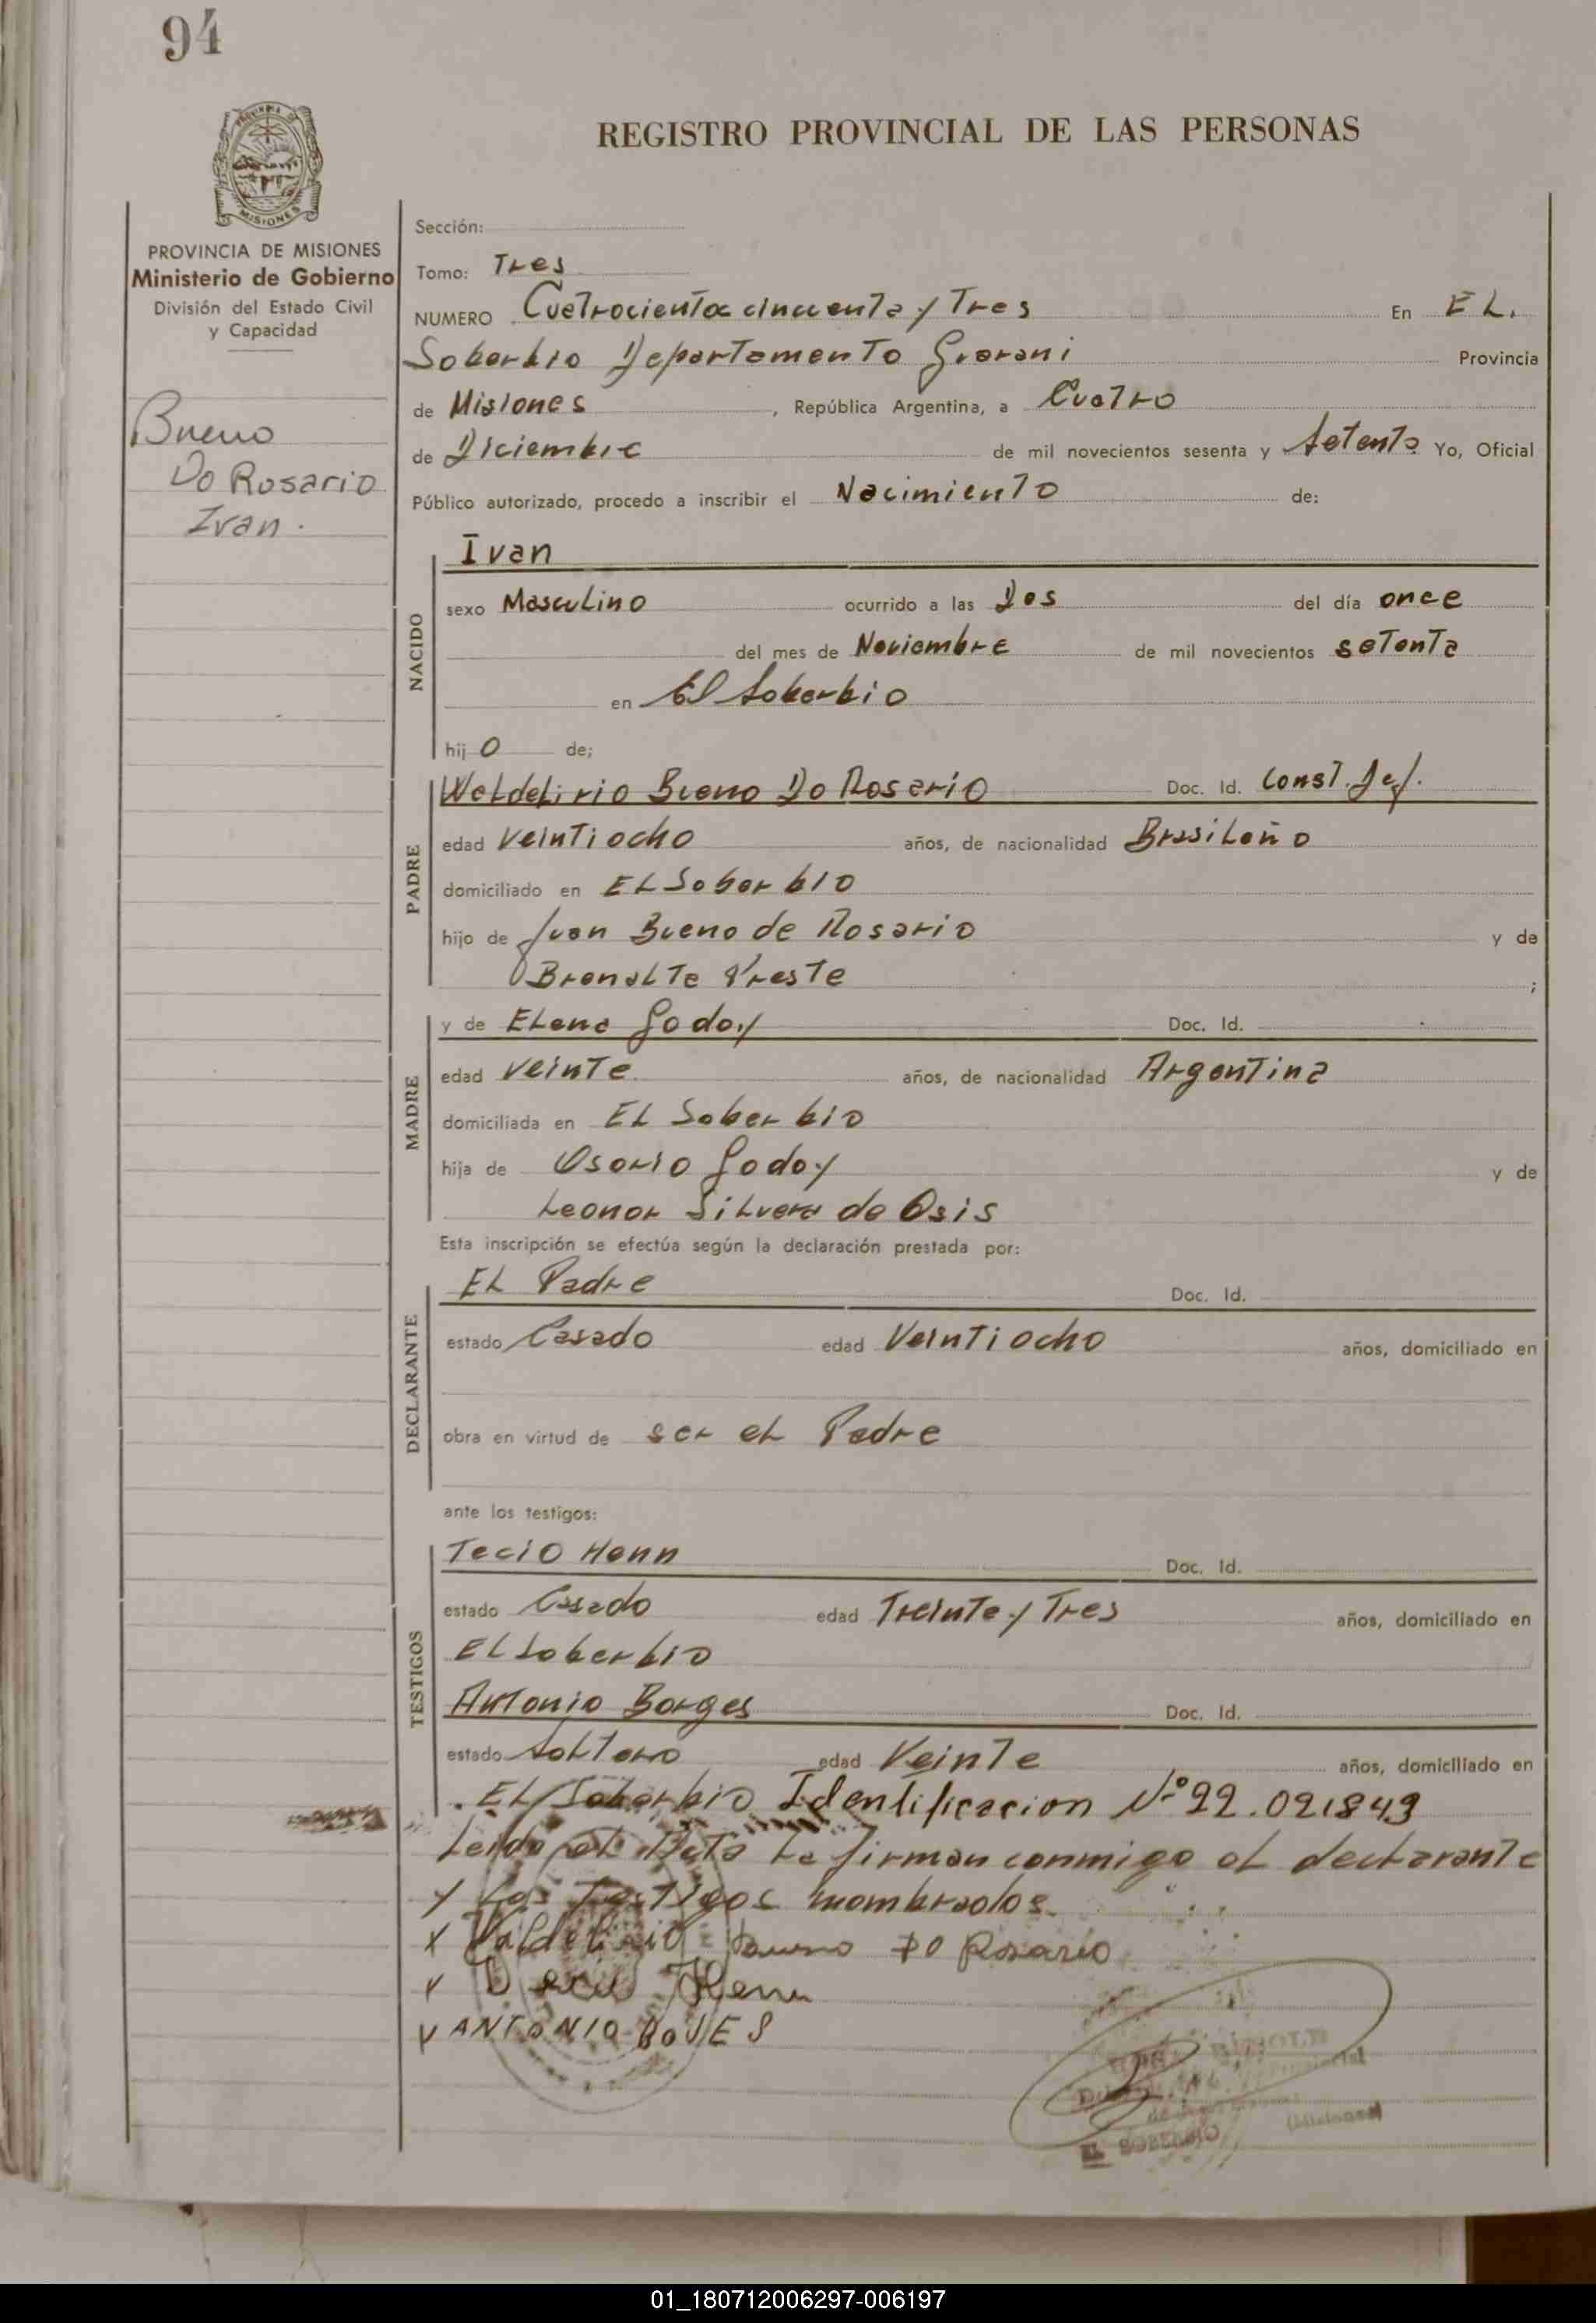 94
REGISTRO PROVINCIAL DE LAS PERSONAS
MISIONES
PROVINCIA DE MISIONES
Ministerio de Gobierno
División del Estado Civil
y Capacidad
Bueno
Do Rosario
Ivan.
Sección:
Tomo: Tres
NUMERO Cuatrocienta cincuenta y Tres En EL.
Soberbio Departamento Guarani Provincia
de Misiones, República Argentina, a Cuatro
de Diciembre de mil novecientos sesenta y Setenta Yo, Oficial
Público autorizado, procedo a inscribir el Nacimiento de:
Ivan
NACIDO
sexo Masculino ocurrido a las Dos del día once
del mes de Noviembre de mil novecientos setenta
en El Soberbio
hij o de;
PADRE
Waldelirio Bueno Do Rosario Doc. Id. Const. Def.
edad veintiocho años, de nacionalidad Brasileño
domiciliado en EL Soberbio
hijo de Juan Bueno de Rosario y de
Preste ;
MADRE
y de Elena Godoy Doc. Id.
edad veinte años, de nacionalidad Argentina
domiciliada en EL Soberbio
hija de Osorio Godoy y de
Leonor Silvera de Osis
Esta inscripción se efectúa según la declaración prestada por:
DECLARANTE
EL Padre Doc. Id.
estado Casado edad Veintiocho años, domiciliado en
obra en virtud de ser el Padre
ante los testigos:
TESTIGOS
Tecio Henn Doc. Id.
estado Casado edad Treinta y Tres años, domiciliado en
EL Soberbio
Antonio Borges Doc. Id.
estado Soltero edad Veinte años, domiciliado en
EL Soberbio Identificacion Nº 22.021849
Leido el Acta La firman conmigo el declarante
y Los Testigos nombrados.
x Valdelirio Bueno do Rosario
x Henn
x ANTONIO
EL SOBERBIO (Misiones)
01_180712006297-006197